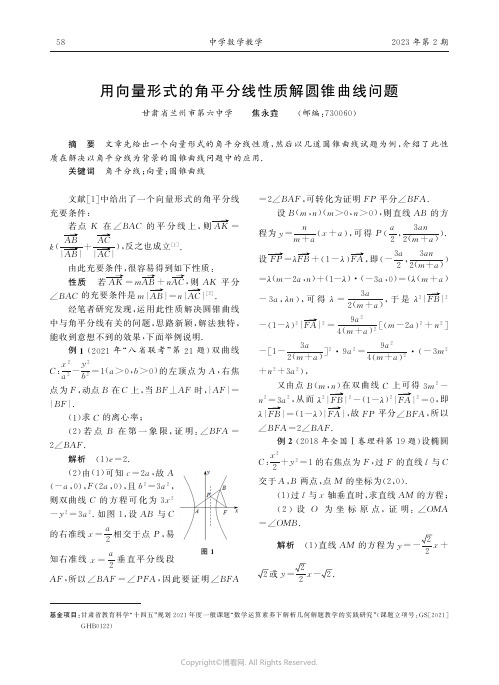 58
中学数学教学
2023 年第 2 期
用向量形式的角平分线性质解圆锥曲线问题
甘肃省兰州市第六中学 焦永垚 (邮编:730060)
摘 要 文章先给出一个向量形式的角平分线性质,然后以几道圆锥曲线试题为例,介绍了此性
质在解决以角平分线为背景的圆锥曲线问题中的应用.
关键词 角平分线;向量;圆锥曲线
文献[1]中给出了一个向量形式的角平分线
充要条件:
若点 K 在∠BAC 的平分线上,则 $\overrightarrow{AK}$ =
k($\frac{\overrightarrow{AB}}{|\overrightarrow{AB}|}$ + $\frac{\overrightarrow{AC}}{|\overrightarrow{AC}|}$),反之也成立[1].
由此充要条件,很容易得到如下性质:
性质 若$\overrightarrow{AK}$ = m$\overrightarrow{AB}$ + n$\overrightarrow{AC}$,则 AK 平分
∠BAC 的充要条件是 m|$\overrightarrow{AB}$| = n|$\overrightarrow{AC}$|[2].
经笔者研究发现,运用此性质解决圆锥曲线
中与角平分线有关的问题,思路新颖,解法独特,
能收到意想不到的效果,下面举例说明.
例 1 (2021 年“八省联考”第 21 题)双曲线
C: $\frac{x^2}{a^2}$ - $\frac{y^2}{b^2}$ = 1(a>0,b>0)的左顶点为 A,右焦
点为 F,动点 B 在 C 上,当 BF⊥AF 时,|AF| =
|BF|.
(1)求 C 的离心率;
(2)若点 B 在第一象限,证明:∠BFA =
2∠BAF.
解析 (1)e=2.
(2)由(1)可知 c=2a,故 A
(-a,0),F(2a,0),且 b²=3a²,
则双曲线 C 的方程可化为 3x²
-y²=3a². 如图 1,设 AB 与 C
的右准线 x=$\frac{a}{2}$ 相交于点 P,易
知右准线 x=$\frac{a}{2}$ 垂直平分线段
y
P
B
A
F
x
图 1
AF,所以∠BAF=∠PFA,因此要证明∠BFA
=2∠BAF,可转化为证明 FP 平分∠BFA.
设 B(m,n)(m>0,n>0),则直线 AB 的方
程为 y=$\frac{n}{m+a}$(x+a),可得 P($\frac{a}{2}$,$\frac{3an}{2(m+a)}$).
设$\overrightarrow{FP}$=λ$\overrightarrow{FB}$+(1-λ)$\overrightarrow{FA}$,即(-$\frac{3a}{2}$,$\frac{3an}{2(m+a)}$)
=λ(m-2a,n)+(1-λ)·(-3a,0)=(λ(m+a)
-3a,λn),可得 λ=$\frac{3a}{2(m+a)}$,于是 λ²|$\overrightarrow{FB}$|²
-(1-λ)²|$\overrightarrow{FA}$|²=$\frac{9a^2}{4(m+a)^2}$[(m-2a)²+n²]
-[1-$\frac{3a}{2(m+a)}$]²·9a²=$\frac{9a^2}{4(m+a)^2}$·(-3m²
+n²+3a²),
又由点 B(m,n)在双曲线 C 上可得 3m²-
n²=3a²,从而 λ²|$\overrightarrow{FB}$|²-(1-λ)²|$\overrightarrow{FA}$|²=0,即
λ|$\overrightarrow{FB}$|=(1-λ)|$\overrightarrow{FA}$|,故 FP 平分∠BFA,所以
∠BFA=2∠BAF.
例 2 (2018 年全国Ⅰ卷理科第 19 题)设椭圆
C:$\frac{x^2}{2}$+y²=1 的右焦点为 F,过 F 的直线 l 与 C
交于 A,B 两点,点 M 的坐标为(2,0).
(1)过 l 与 x 轴垂直时,求直线 AM 的方程;
(2)设 O 为坐标原点,证明:∠OMA
=∠OMB.
解析 (1)直线 AM 的方程为 y=-$\frac{\sqrt{2}}{2}$x+
$\sqrt{2}$或 y=$\frac{\sqrt{2}}{2}$x-$\sqrt{2}$.
基金项目:甘肃省教育科学“十四五”规划 2021 年度一般课题“数学运算素养下解析几何解题教学的实践研究”(课题立项号:GS[2021]
GHB0122)
Copyright©博看网. All Rights Reserved.